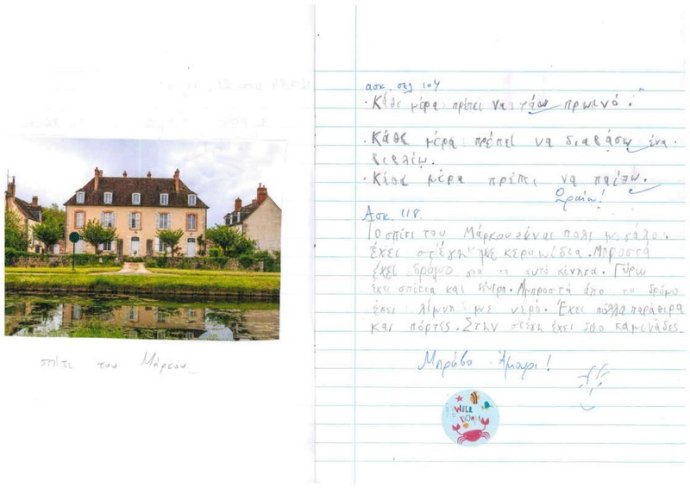 σπίτι του Μάρκου
ασκ. σελ 104
· Κάθε μέρα πρέπει να τρώω πρωινό.
· Κάθε μέρα πρέπει να διαβάσω ένα
βιβλίω.
· Κάθε μέρα πρέπει να παίξω.
Ωραία!
Ασκ. 118.
Το σπίτι του Μάρκου είναι πολι μεγάλο.
έχει στέγη με κεραμίδια. Μπροστά
έχει δρόμο για τα αυτοκίνητα. Γύρω
έχει σπίτεια και δέντρα. Μπροστά απο το δρόμο
έχει λίμνη με νερό. Έχει πολλα παράθιρα
και πόρτες. Στην στέγη έχει δυο καμινάδες.
Μπράβο Αμαρι!
WELL
DONE